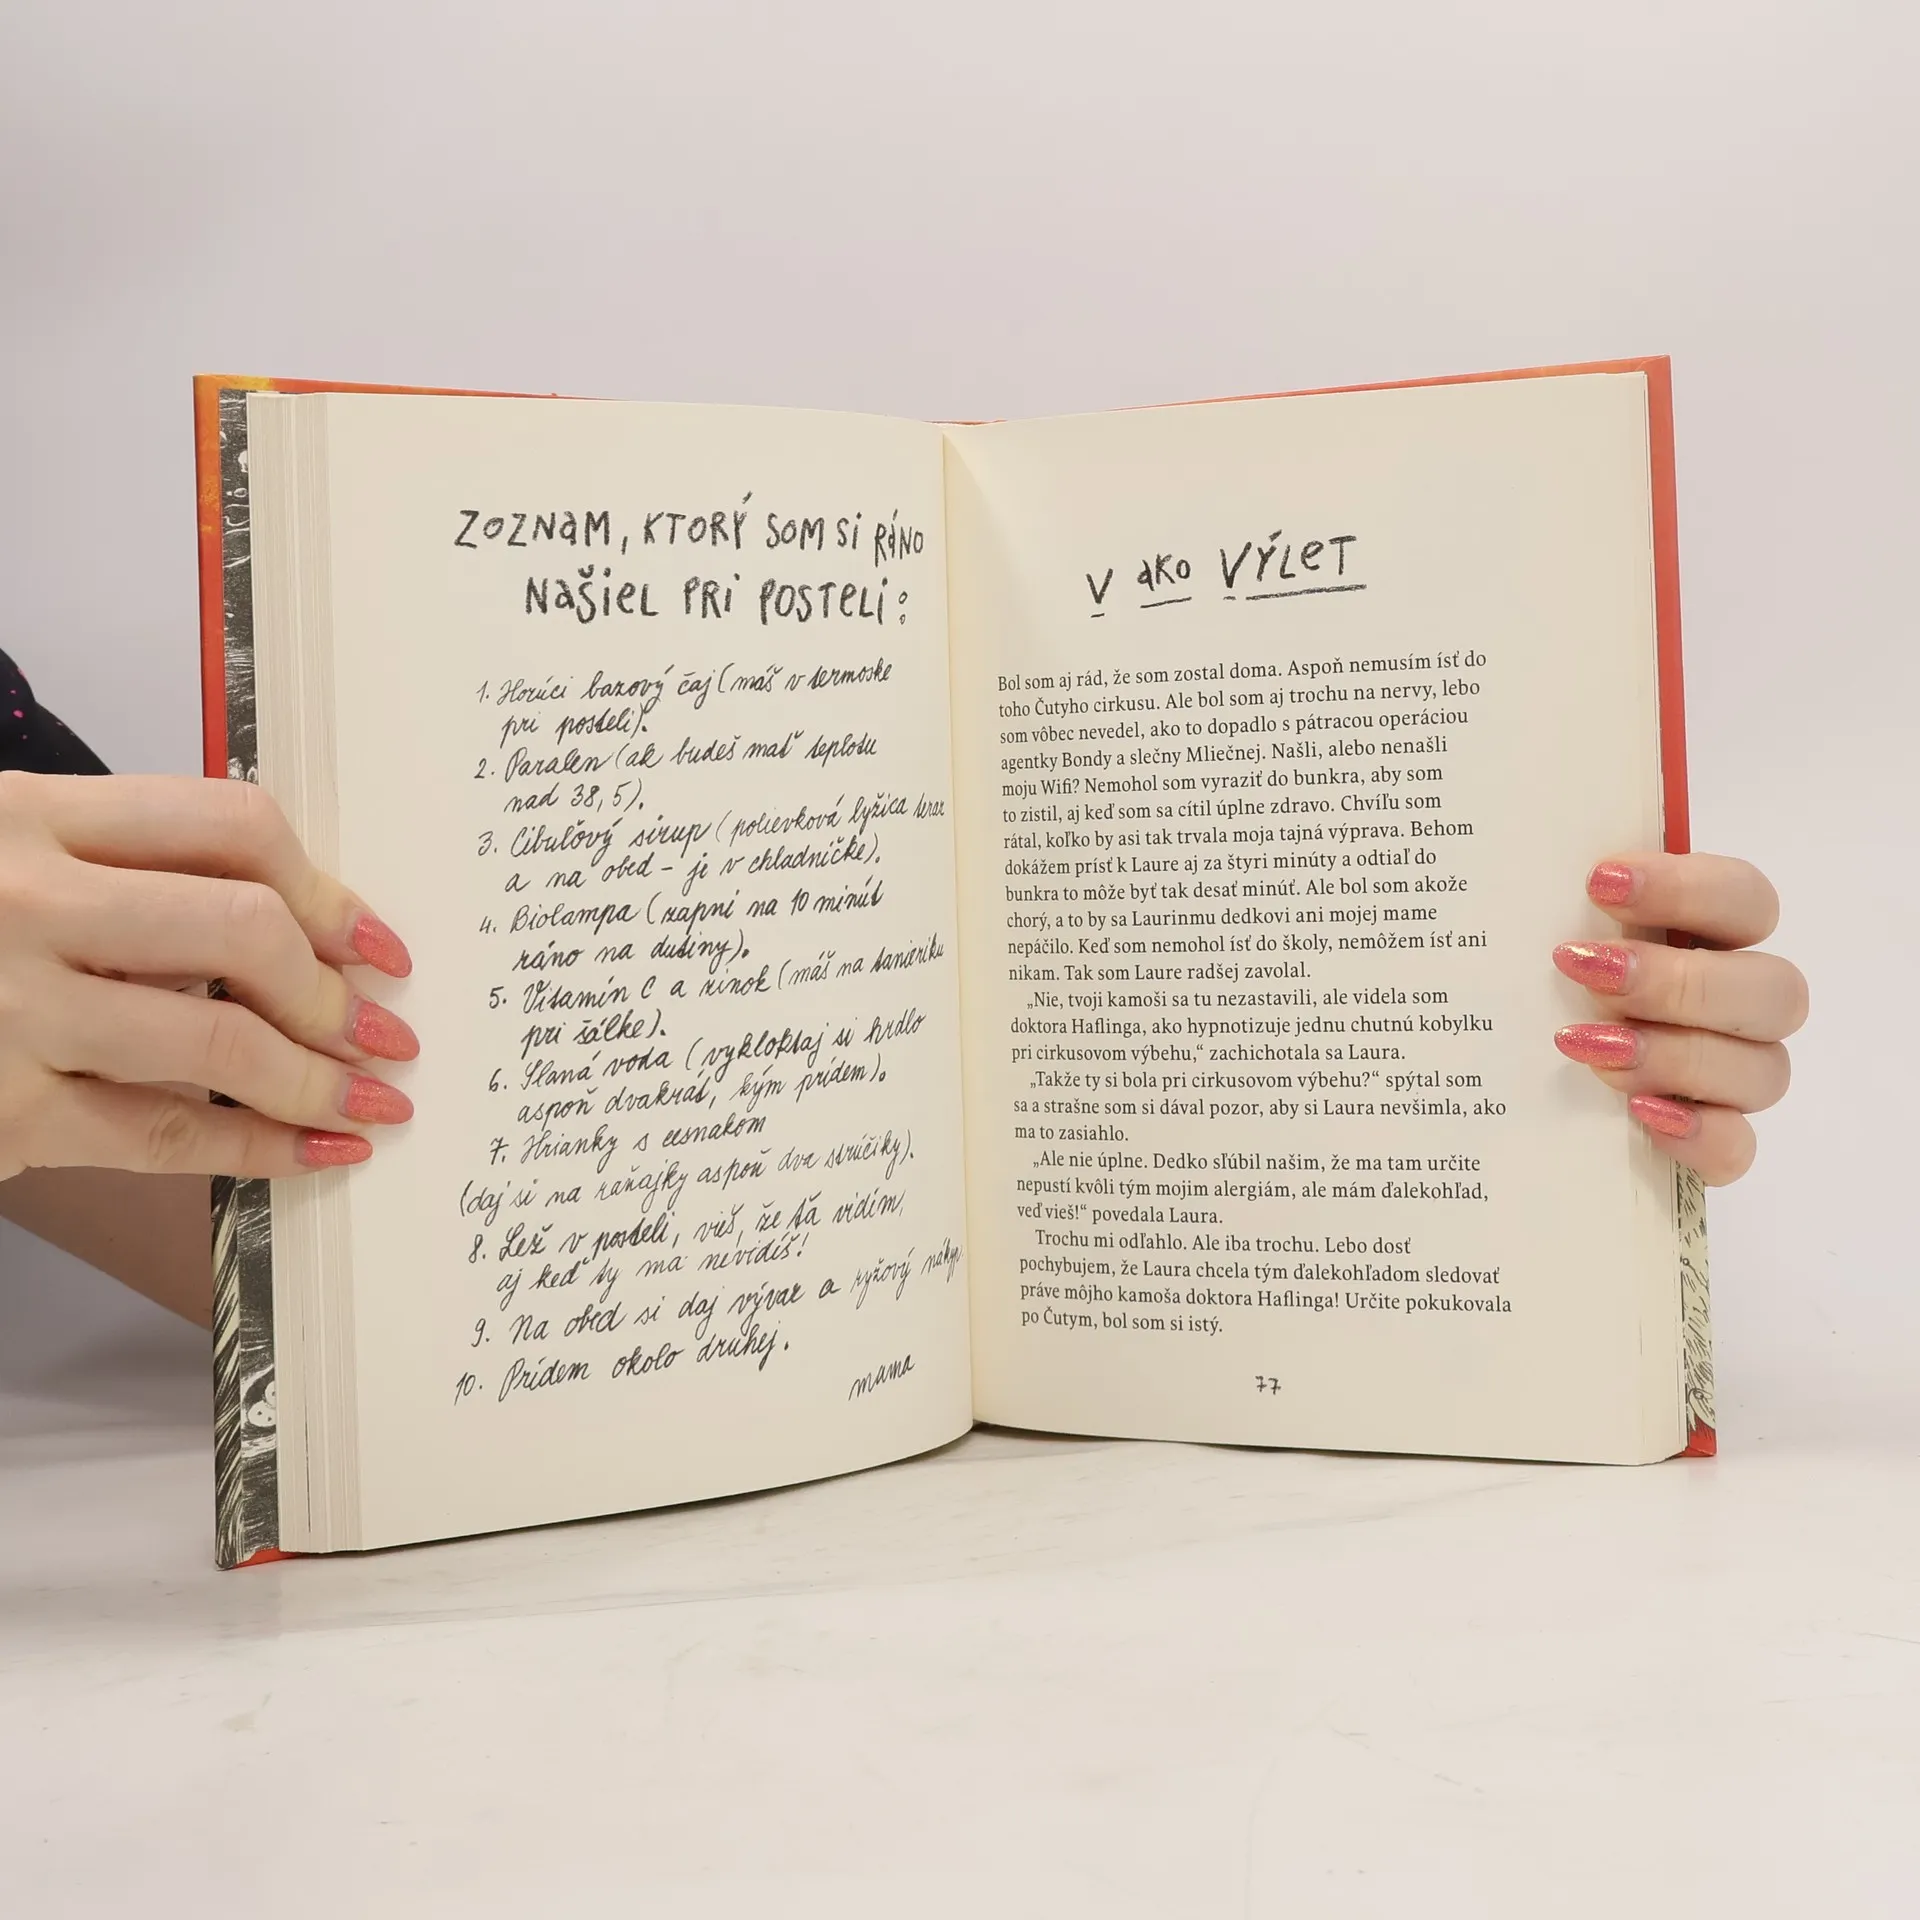 ZOZNAM, KTORÝ SOM SI RÁNO
NAŠIEL PRI POSTELI:
1. Horúci bazový čaj (máš v termoske
pri posteli).
2. Paralen (ak budeš mať teplotu
nad 38,5).
3. Cibuľový sirup (polievková lyžica teraz
a na obed – je v chladničke).
4. Biolampa (zapni na 10 minút
ráno na dutiny).
5. Vitamín C a zinok (máš na tanieriku
pri šálke).
6. Slaná voda (vykloktaj si hrdlo
aspoň dvakrát, kým prídem).
7. Hrianky s cesnakom
(daj si na raňajky aspoň dva strúčiky).
8. Lež v posteli, vieš, že ťa vidím,
aj keď ty ma nevidíš!
9. Na obed si daj vývar a ryžový nákyp.
10. Prídem okolo druhej.
mama
V AKO VÝLET
Bol som aj rád, že som zostal doma. Aspoň nemusím ísť do
toho Čutyho cirkusu. Ale bol som aj trochu na nervy, lebo
som vôbec nevedel, ako to dopadlo s pátracou operáciou
agentky Bondy a slečny Mliečnej. Našli, alebo nenašli
moju Wifi? Nemohol som vyraziť do bunkra, aby som
to zistil, aj keď som sa cítil úplne zdravo. Chvíľu som
rátal, koľko by asi tak trvala moja tajná výprava. Behom
dokážem prísť k Laure aj za štyri minúty a odtiaľ do
bunkra to môže byť tak desať minút. Ale bol som akože
chorý, a to by sa Laurinmu dedkovi ani mojej mame
nepáčilo. Keď som nemohol ísť do školy, nemôžem ísť ani
nikam. Tak som Laure radšej zavolal.
„Nie, tvoji kamoši sa tu nezastavili, ale videla som
doktora Haflinga, ako hypnotizuje jednu chutnú kobylku
pri cirkusovom výbehu,“ zachichotala sa Laura.
„Takže ty si bola pri cirkusovom výbehu?“ spýtal som
sa a strašne som si dával pozor, aby si Laura nevšimla, ako
ma to zasiahlo.
„Ale nie úplne. Dedko sľúbil našim, že ma tam určite
nepustí kvôli tým mojim alergiám, ale mám ďalekohľad,
veď vieš!“ povedala Laura.
Trochu mi odľahlo. Ale iba trochu. Lebo dosť
pochybujem, že Laura chcela tým ďalekohľadom sledovať
práve môjho kamoša doktora Haflinga! Určite pokukovala
po Čutym, bol som si istý.
77